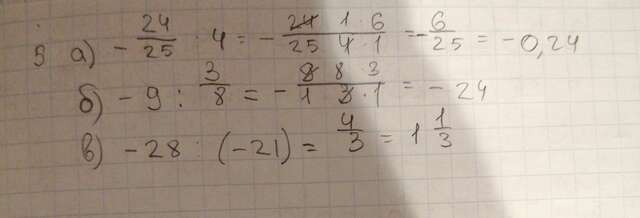 5 а) - 24/25 · 4 = - 24 1 · 6 / 25 4 · 1 = - 6/25 = - 0,24
б) - 9 : 3/8 = - 9 8 · 3 / 1 3 · 1 = - 24
в) - 28 : (-21) = 4/3 = 1 1/3